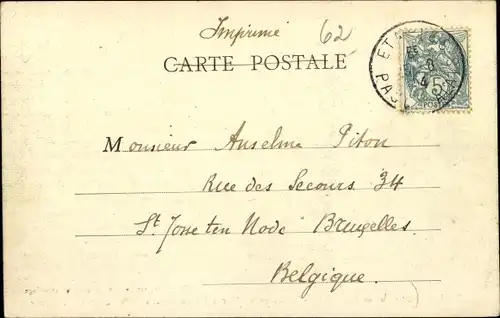 Imprimé
62
CARTE POSTALE
ETA
PAS
5
POSTES
Monsieur Anselme Piton
Rue des Secours 34
St Josse ten Node Bruxelles.
Belgique.